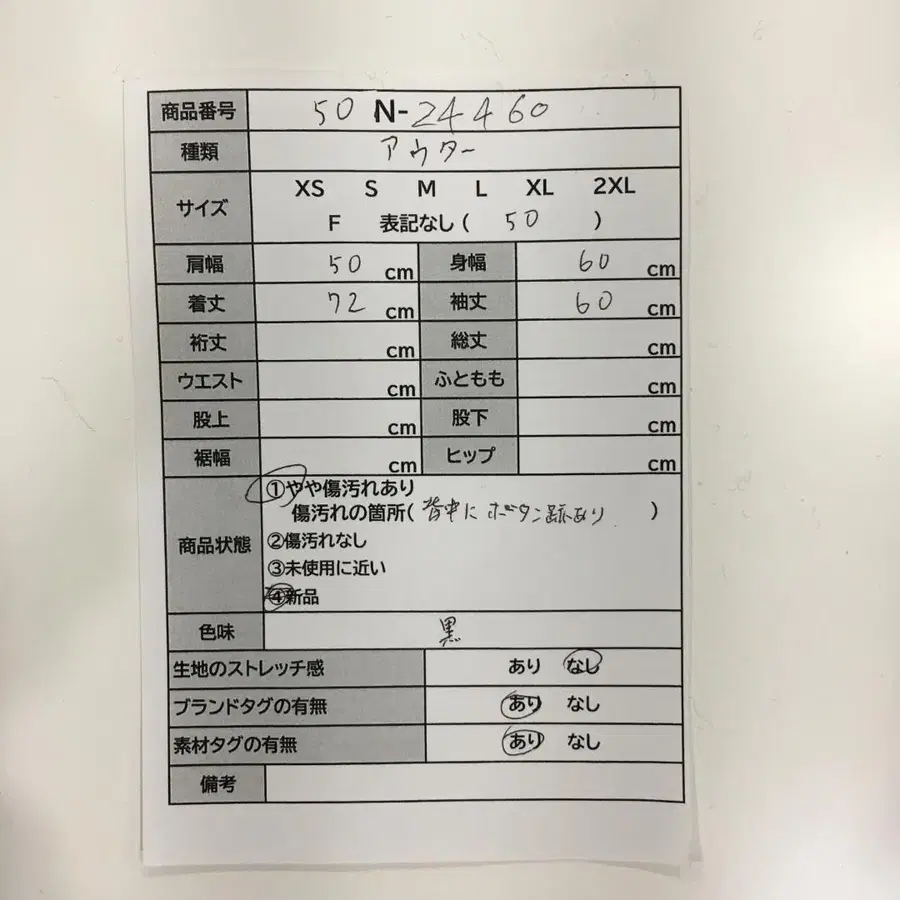 商品番号 50 N-24460
種類 アウター
サイズ XS S M L XL 2XL
F 表記なし( 50 )
肩幅 50 cm 身幅 60 cm
着丈 72 cm 袖丈 60 cm
裄丈 cm 総丈 cm
ウエスト cm ふともも cm
股上 cm 股下 cm
裾幅 cm ヒップ cm
①やや傷汚れあり
傷汚れの箇所( 背中に ボタン跡あり )
商品状態 ②傷汚れなし
③未使用に近い
④新品
色味 黒
生地のストレッチ感 あり なし
ブランドタグの有無 あり なし
素材タグの有無 あり なし
備考